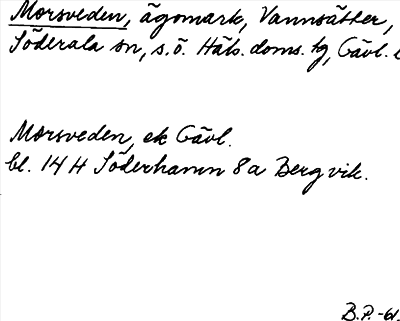 Morsveden, ägomark, Vannsätter,
Söderala sn, s.ö. Häls. doms. tg, Gävl. l
Morsveden, ek Gävl.
bl. 14 H Söderhamn 8a Bergvik.
B.P.-61.